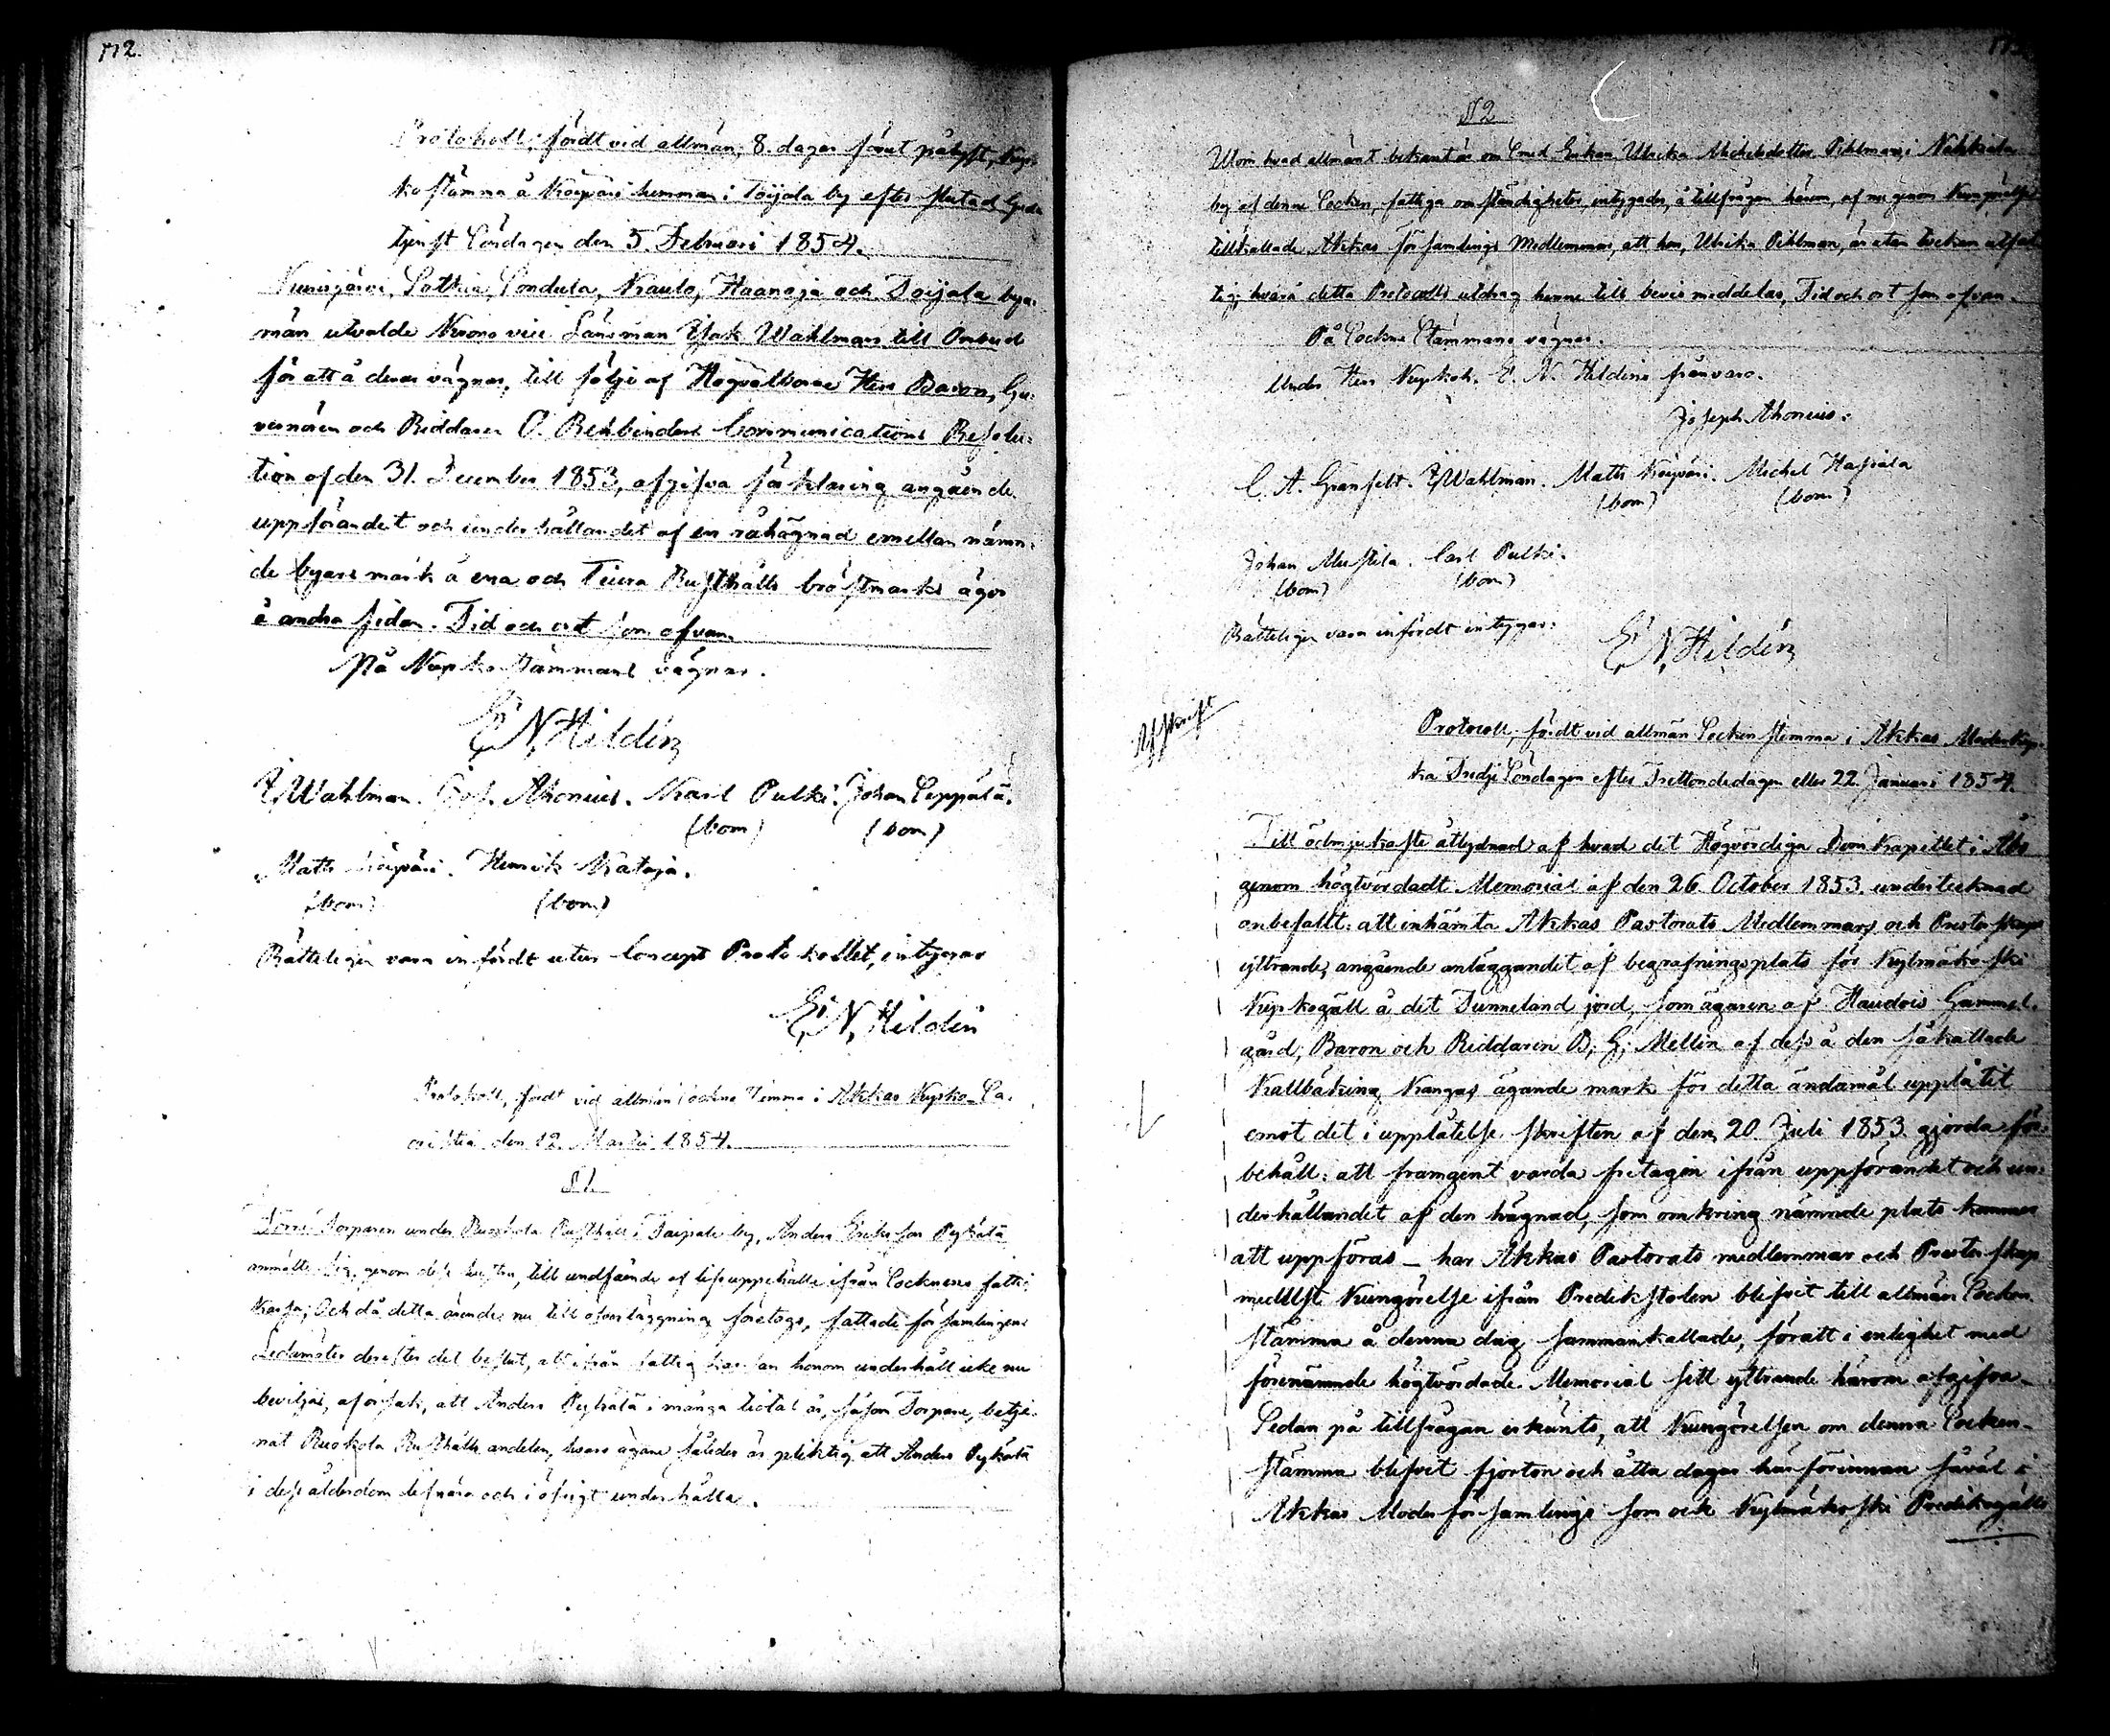 172.
Protokoll, fördt vid allmän, 8. dagar förut pålyst, Kyr-
ko stämma å Korpari hemman i Toijala by efter slutad Guds
tjenst Söndagen den 5. Februari 1854.
Kurisjärvi, Sotkia, Sondula, Kaulo, Haanoja och Toijala bya-
män utvalde Krono vice Länsman Isak Wahlman till Ombud
för att å deras vägnar, till följe af Högvälborne Herr Baron, Gu-
vernören och Riddaren O. Rehbinders Communications Resolu-
tion af den 31. December 1853, afgifva förklaring angående
uppförandet och underhållandet af en råhägnad emellan nämn-
de byars mark å ena och Teura Rusthålls bröstmarks ägor
å andra sidan. Tid och ort som ofvan.
På Kyrko stämmans vägnar.
E. N. Hildén
I. Wahlman. Jos. Ahonius. Karl Pulki. Johan Seppälä.
(bom) (bom)
Matts Korpari. Henrik Kataja.
(bom) (bom)
Rätteligen vara infördt utur Concept Protokollet, intygar
E. N. Hildén
Protokoll, fördt vid allmän Sockne stämma i Akkas Kyrko-Sa-
cristia den 12. Martii 1854.
§ 1.
Förre Torparen under Ruokola Rusthåll i Taipale by, Anders Eriksson Pykälä
anmälte sig, genom dess hustru, till undfående af lifsuppehälle ifrån Socknens fatti-
kassa; Och då detta ärende nu till öfverläggning företogs, fattade församlingens
Ledamöter derefter det beslut, att ifrån fattig kassan honom underhåll icke nu
beviljas, af orsak, att Anders Pykälä i många tiotal år, såsom Torpare, betje-
nat Ruokola Rusthålls andelen, hvars ägare således är pliktig att Anders Pykälä
i dess ålderdom lifnära och i öfrigt underhålla.
§ 2
Utom hvad allmänt bekant är om Smed Enkan Ulrika Michelsdotter Pihlmans, i Nahkiala
by af denne Socken, fattiga omständigheter, intygades, å tillfrågan härom, af nu genom Kungörelse
tillkallade Akkas församlings Medlemmar, att hon, Ulrika Pihlman, är utan tvekan utfat-
tig; hvarå detta Protocolls utdrag henne till bevis meddelas, Tid och ort som ofvan.
På Sockne Stämmans vägnar.
Under Herr Kyrkoh. E. N. Hildéns frånvaro.
Joseph Ahonius.
C. A. Granfelt. I. Wahlman. Matts Korpari. Michel Hassala
(bom) (bom)
Johan Mustila. Carl Pulki.
(bom) (bom)
Rätteligen vara infördt intygar:
E. N. Hildén
Afskrift
Protocoll, fördt vid allmän Socken stemma i Akkas Moderkyr-
ka Tredje Söndagen efter Trettondedagen eller 22. Januari 1854.
Till ödmjukaste åtlydnad af hvad det Högvördiga Dom Kapitlet i Åbo
genom högtvördadt Memorial af den 26. October 1853. undertecknad
anbefallt: att inhämta Akkas Pastorats Medlemmars och Presterskaps
yttrande, angående anläggandet af begrafningsplats för Kylmäkoski
Kyrkogäll å det Tunneland jord, som ägaren af Haudois Gammel-
gård, Baron och Riddaren B. G. Mellin af dess å den så kallade
Kallbäking Kangas ägande mark för detta ändamål upplåtit
emot det i upplåtelse skriften af den 20. Juli 1853. gjorda för-
behåll: att framgent varda fritagen ifrån uppförandet och un-
derhållandet af den hägnad, som omkring nämnde plats kommer
att uppföras — har Akkas Pastorats medlemmar och Presterskap
medelst Kungörelse ifrån Predikstolen blifvit till allmän Socken
stämma å denna dag sammankallade, för att i enlighet med
förenämnde högtvördade Memorial sitt yttrande härom afgifva.
Sedan på tillfrågan erkänts, att Kungörelsen om denna Socken-
stämma blifvit fjorton och åtta dagar härförinnan såväl i
Akkas Moder församlings som och Kylmäkoski Predikogälls